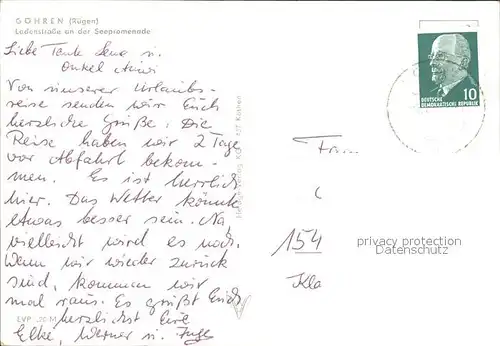 GÖHREN (Rügen)
Ladenstraße an der Seepromenade
Liebe Tante Lena u.
Onkel
Von unserer Urlaubs-
reise senden wir Euch
herzliche Grüße. Die
Reise haben wir 2 Tage
vor Abfahrt bekom-
men. Es ist herrlich
hier. Das Wetter könnte
etwas besser sein. Na,
vielleicht wird es noch.
Wenn wir wieder zurück
sind, kommen wir
mal raus. Es grüßt Euch
herzlichst Eure
Elke, Werner u. Inge
EVP -,20 M
10
DEUTSCHE
DEMOKRATISCHE REPUBLIK
Frau
154
privacy protection
Datenschutz
Kla